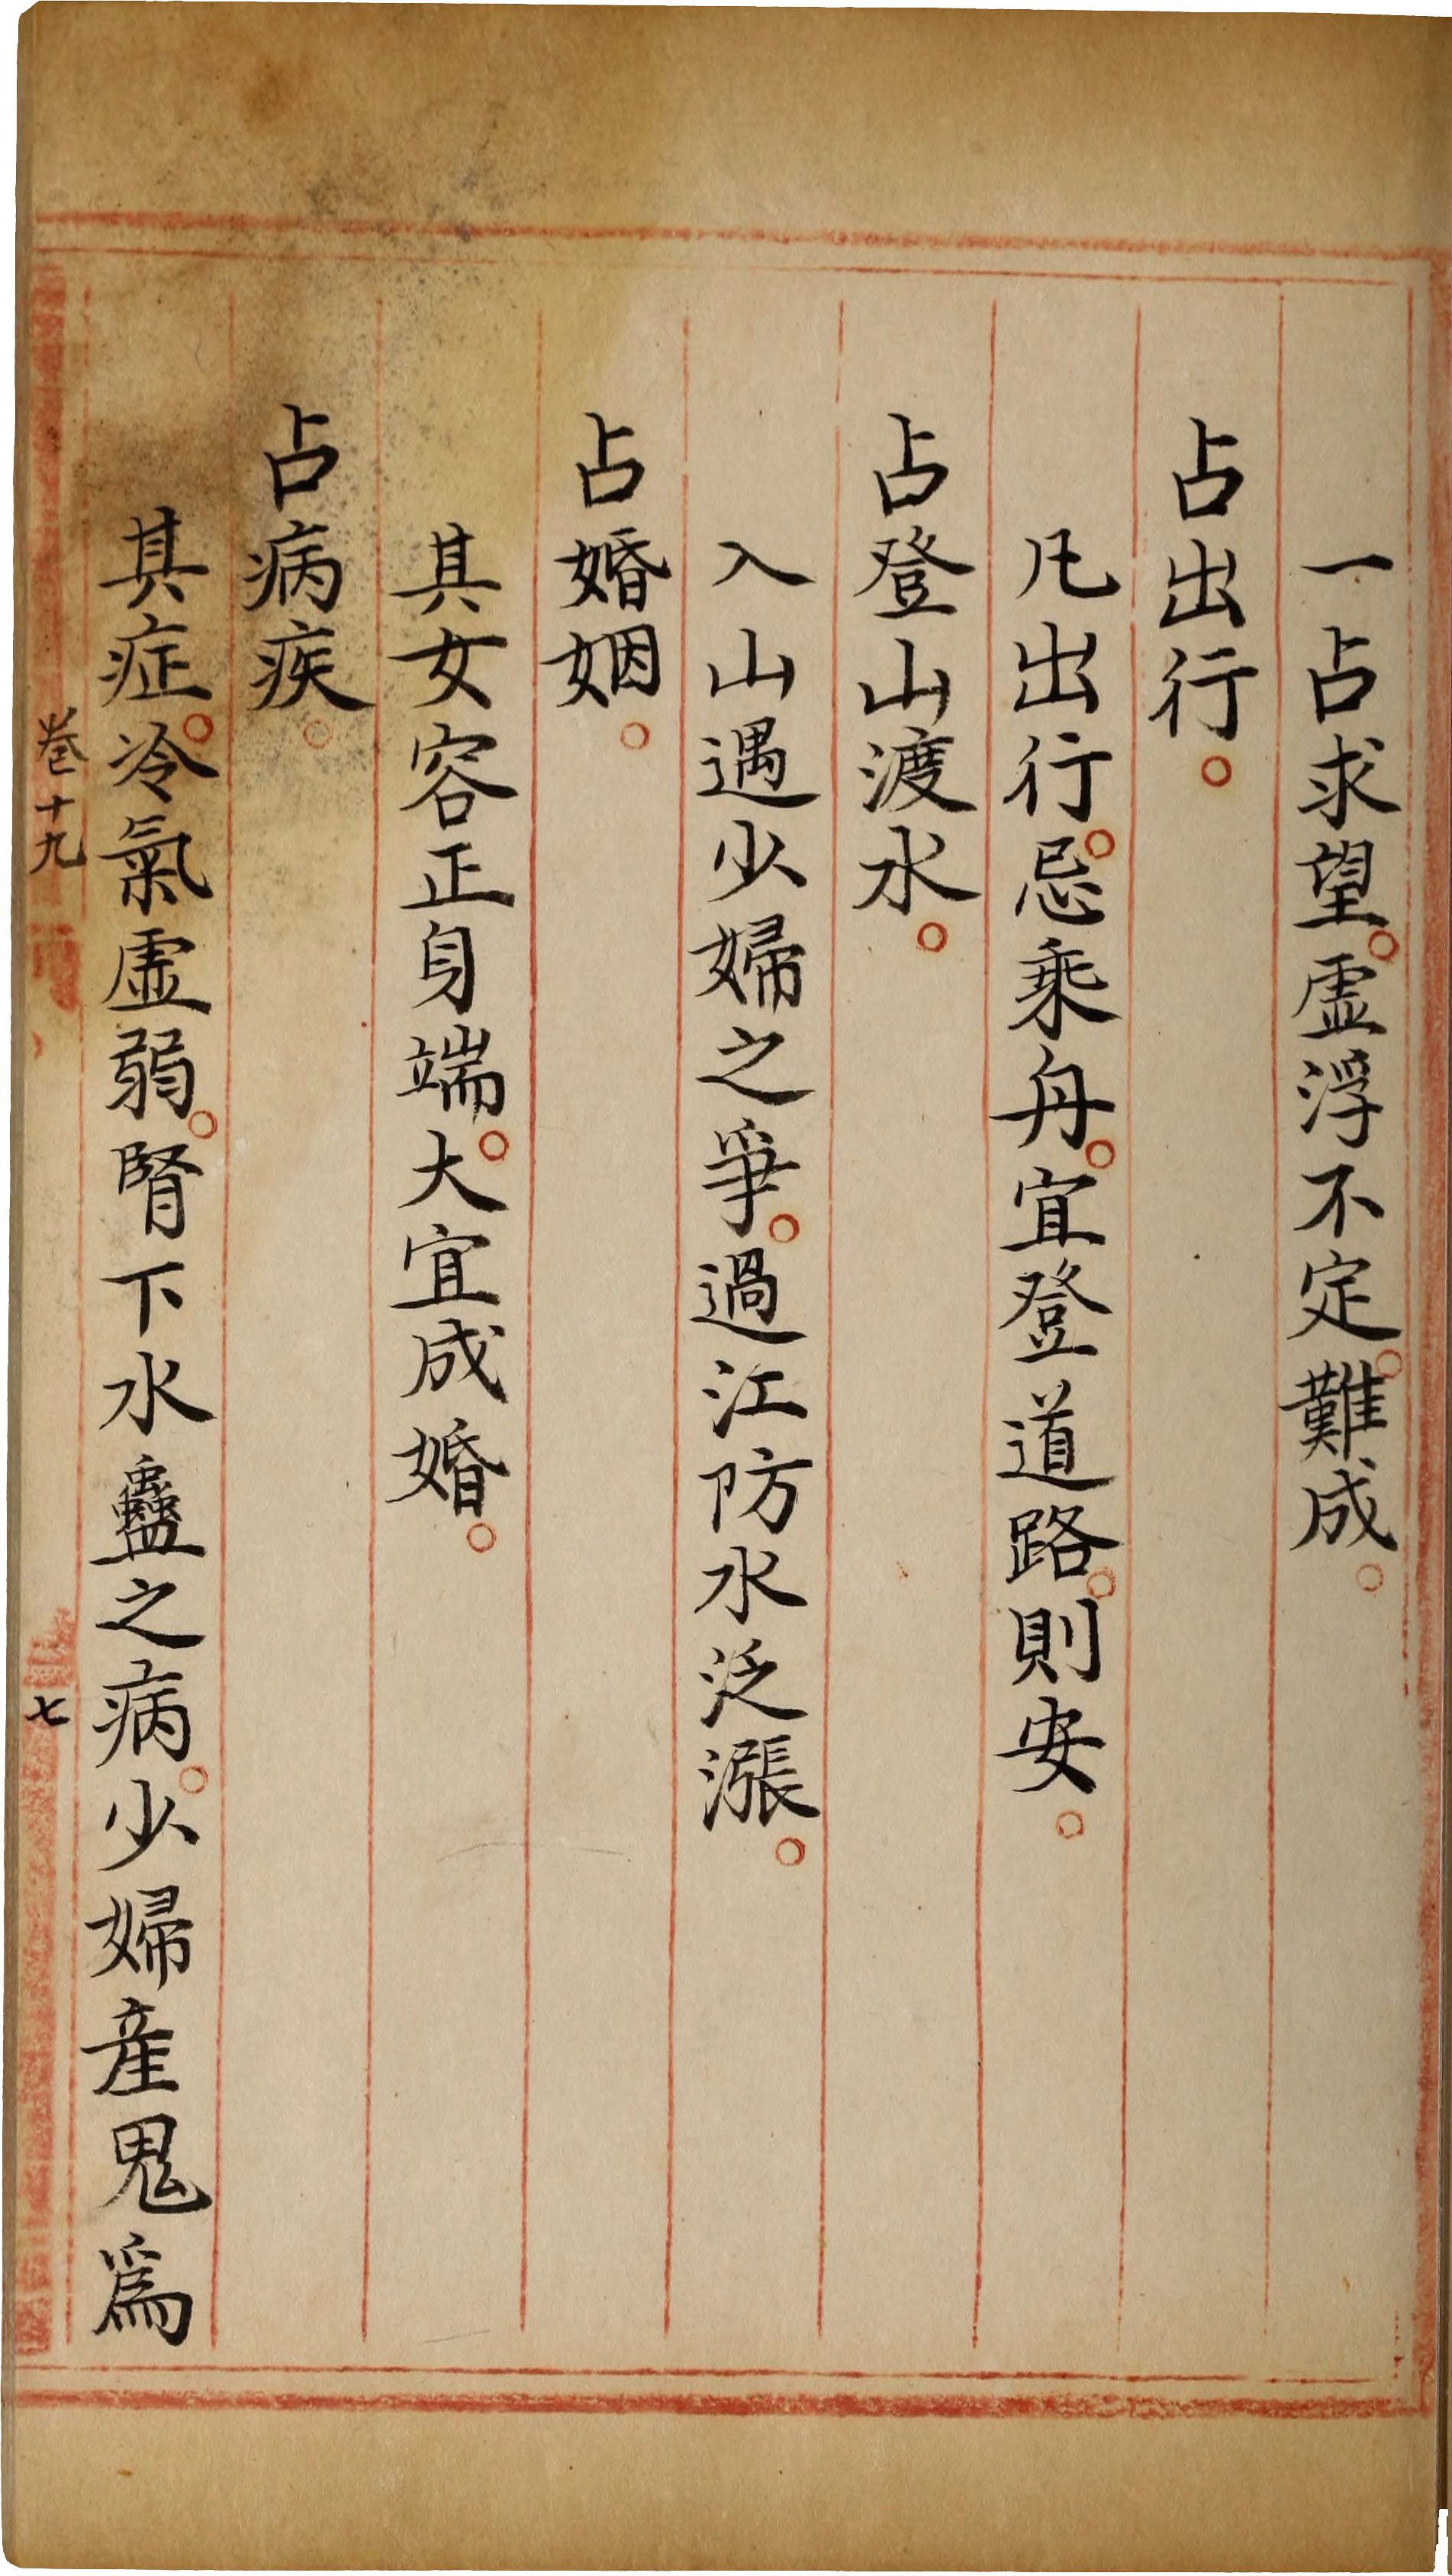 一占求望。虚浮不定。難成。
占出行。
凡出行。忌乘舟。宜登道路。則安。
占登山渡水。
入山遇少婦之爭。過江防水泛漲。
占婚姻。
其女容正身端。大宜成婚。
占病疾。
其症。冷氣虚弱。腎下水蠱之病。少婦産鬼爲
卷十九
七